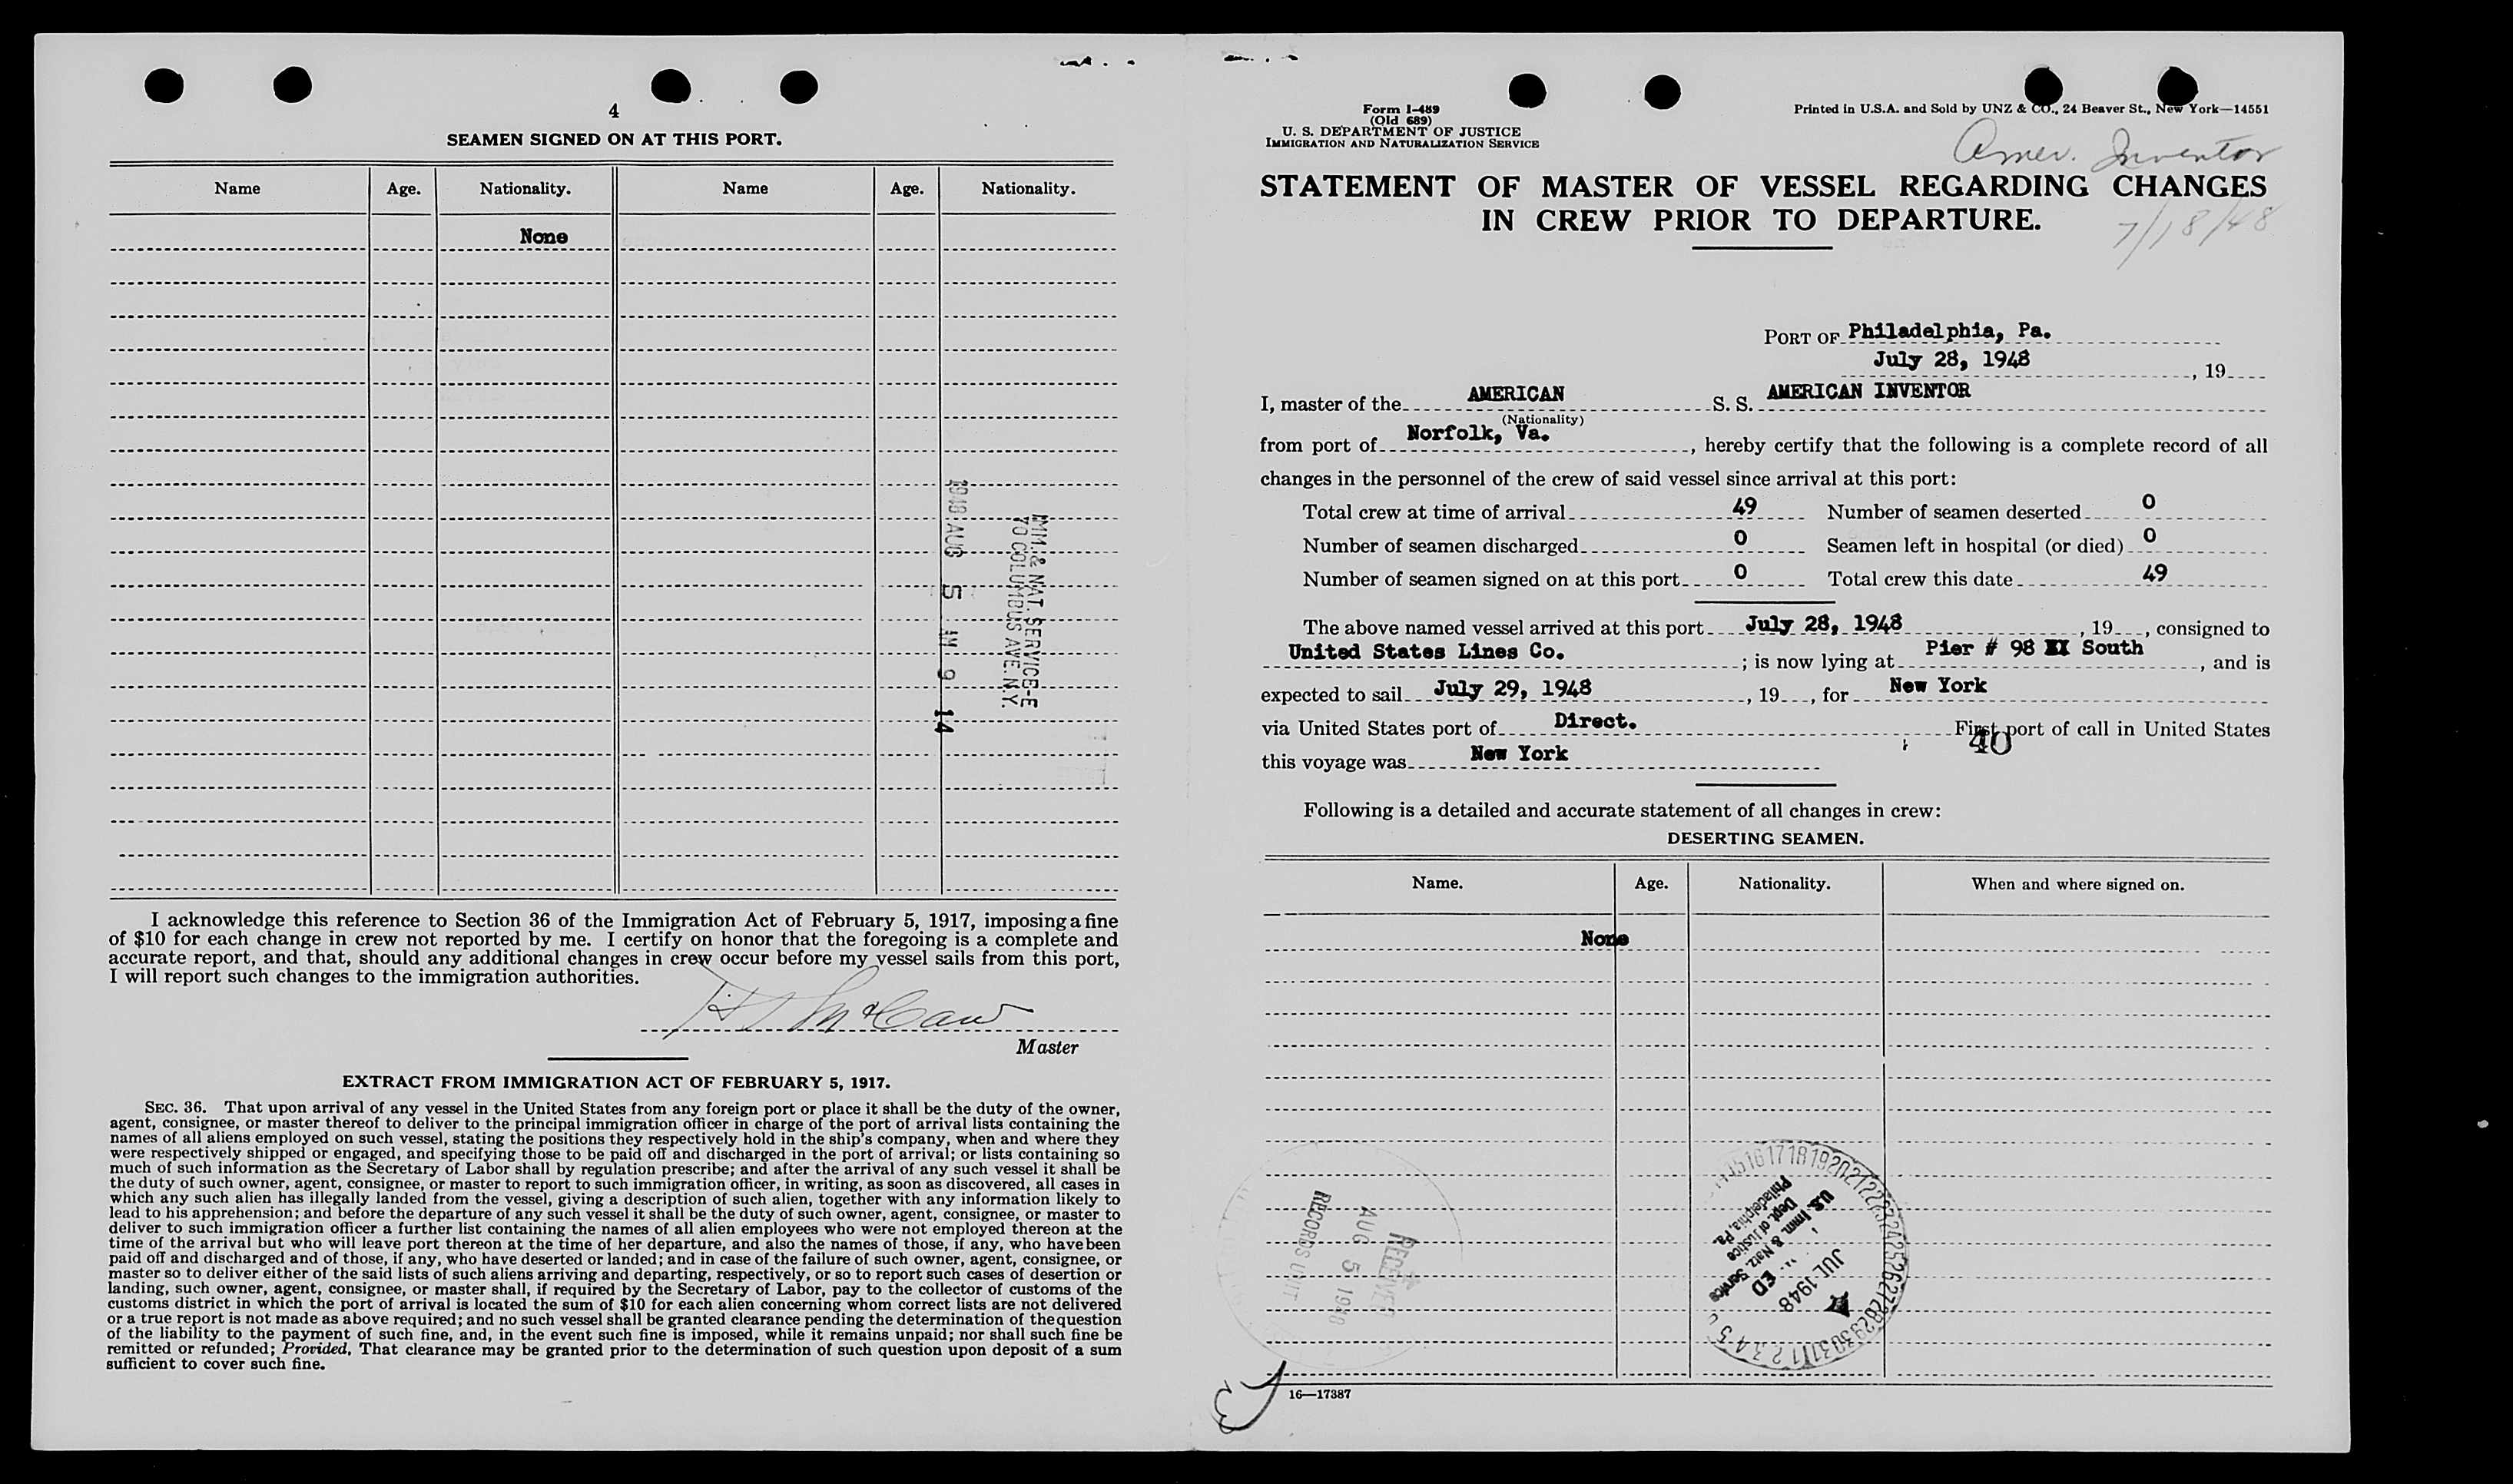 4
SEAMEN SIGNED ON AT THIS PORT.
Name Age. Nationality. Name Age. Nationality.
None
1948 AUG 5 AM 9 14
IMM. & NAT. SERVICE-E
70 COLUMBUS AVE. N.Y.
I acknowledge this reference to Section 36 of the Immigration Act of February 5, 1917, imposing a fine
of $10 for each change in crew not reported by me. I certify on honor that the foregoing is a complete and
accurate report, and that, should any additional changes in crew occur before my vessel sails from this port,
I will report such changes to the immigration authorities.
McCaw
Master
EXTRACT FROM IMMIGRATION ACT OF FEBRUARY 5, 1917.
SEC. 36. That upon arrival of any vessel in the United States from any foreign port or place it shall be the duty of the owner,
agent, consignee, or master thereof to deliver to the principal immigration officer in charge of the port of arrival lists containing the
names of all aliens employed on such vessel, stating the positions they respectively hold in the ship's company, when and where they
were respectively shipped or engaged, and specifying those to be paid off and discharged in the port of arrival; or lists containing so
much of such information as the Secretary of Labor shall by regulation prescribe; and after the arrival of any such vessel it shall be
the duty of such owner, agent, consignee, or master to report to such immigration officer, in writing, as soon as discovered, all cases in
which any such alien has illegally landed from the vessel, giving a description of such alien, together with any information likely to
lead to his apprehension; and before the departure of any such vessel it shall be the duty of such owner, agent, consignee, or master to
deliver to such immigration officer a further list containing the names of all alien employees who were not employed thereon at the
time of the arrival but who will leave port thereon at the time of her departure, and also the names of those, if any, who have been
paid off and discharged and of those, if any, who have deserted or landed; and in case of the failure of such owner, agent, consignee, or
master so to deliver either of the said lists of such aliens arriving and departing, respectively, or so to report such cases of desertion or
landing, such owner, agent, consignee, or master shall, if required by the Secretary of Labor, pay to the collector of customs of the
customs district in which the port of arrival is located the sum of $10 for each alien concerning whom correct lists are not delivered
or a true report is not made as above required; and no such vessel shall be granted clearance pending the determination of the question
of the liability to the payment of such fine, and, in the event such fine is imposed, while it remains unpaid; nor shall such fine be
remitted or refunded; Provided, That clearance may be granted prior to the determination of such question upon deposit of a sum
sufficient to cover such fine.
Form I-489
(Old 689)
U. S. DEPARTMENT OF JUSTICE
IMMIGRATION AND NATURALIZATION SERVICE
Printed in U.S.A. and Sold by UNZ & CO., 24 Beaver St., New York—14551
Amer. Inventor
STATEMENT OF MASTER OF VESSEL REGARDING CHANGES
IN CREW PRIOR TO DEPARTURE.
7/18/48
PORT OF Philadelphia, Pa.
July 28, 1948 , 19
I, master of the AMERICAN S. S. AMERICAN INVENTOR
(Nationality)
from port of Norfolk, Va. , hereby certify that the following is a complete record of all
changes in the personnel of the crew of said vessel since arrival at this port:
Total crew at time of arrival 49 Number of seamen deserted 0
Number of seamen discharged 0 Seamen left in hospital (or died) 0
Number of seamen signed on at this port 0 Total crew this date 49
The above named vessel arrived at this port July 28, 1948 , 19 , consigned to
United States Lines Co. ; is now lying at Pier # 98 South , and is
expected to sail July 29, 1948 , 19 , for New York
via United States port of Direct. First port of call in United States
40
this voyage was New York
Following is a detailed and accurate statement of all changes in crew:
DESERTING SEAMEN.
Name. Age. Nationality. When and where signed on.
None
RECEIVED
AUG 5 1948
RECORDS UNIT
U.S. Imm. & Natz. Service
Dept. of Justice
Philadelphia, Pa.
JUL 1948
16—17387